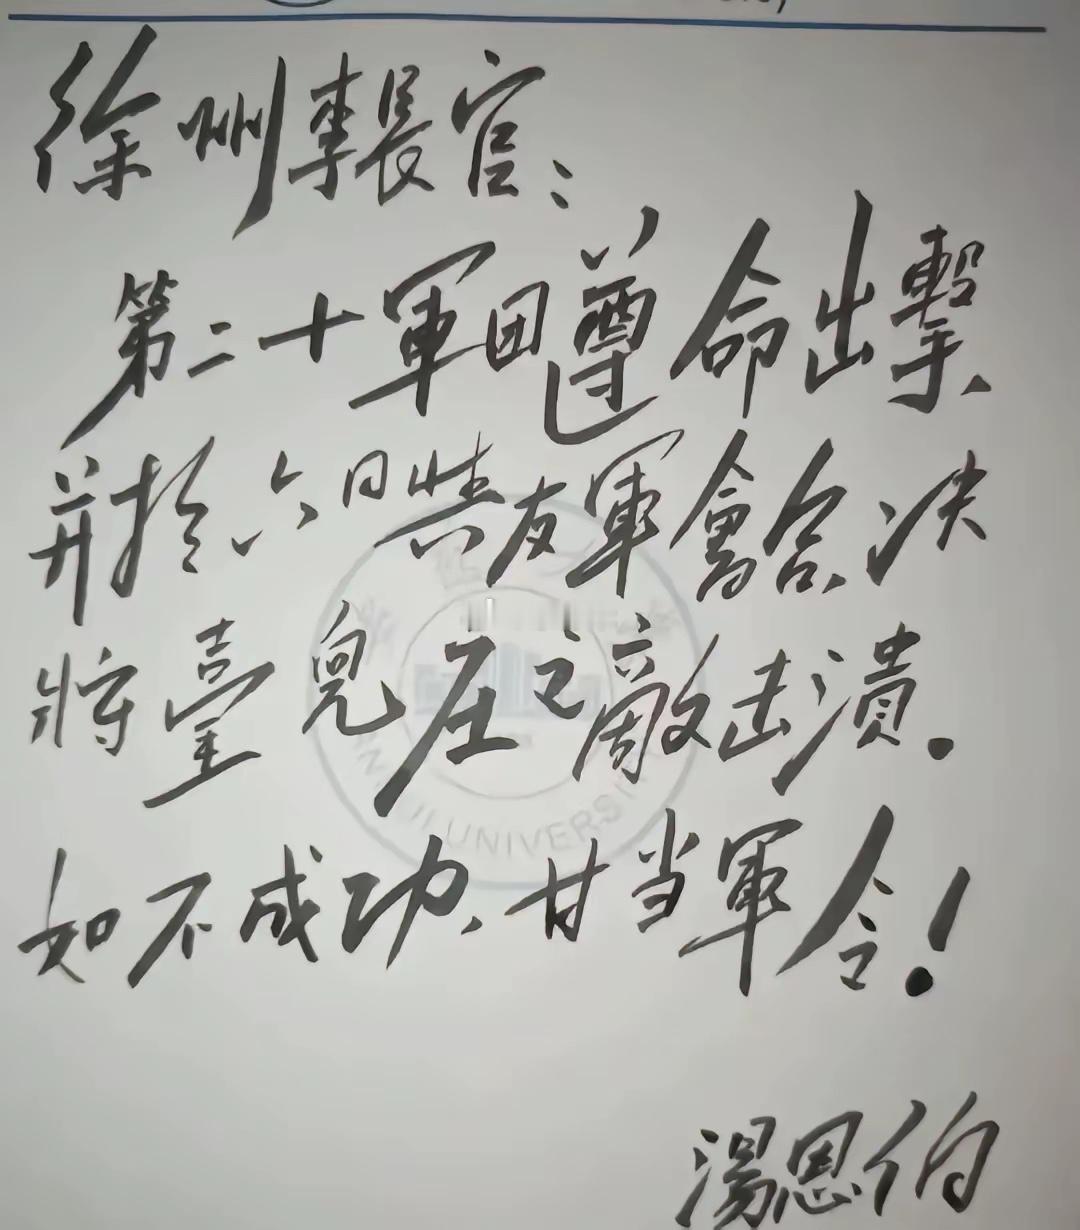 徐州李長官：
第二十軍团遵命出擊、
并於六日與友軍會合、决
將臺兒庄之敵击潰。
如不成功、甘当軍令！
UNIVERSI
湯恩伯